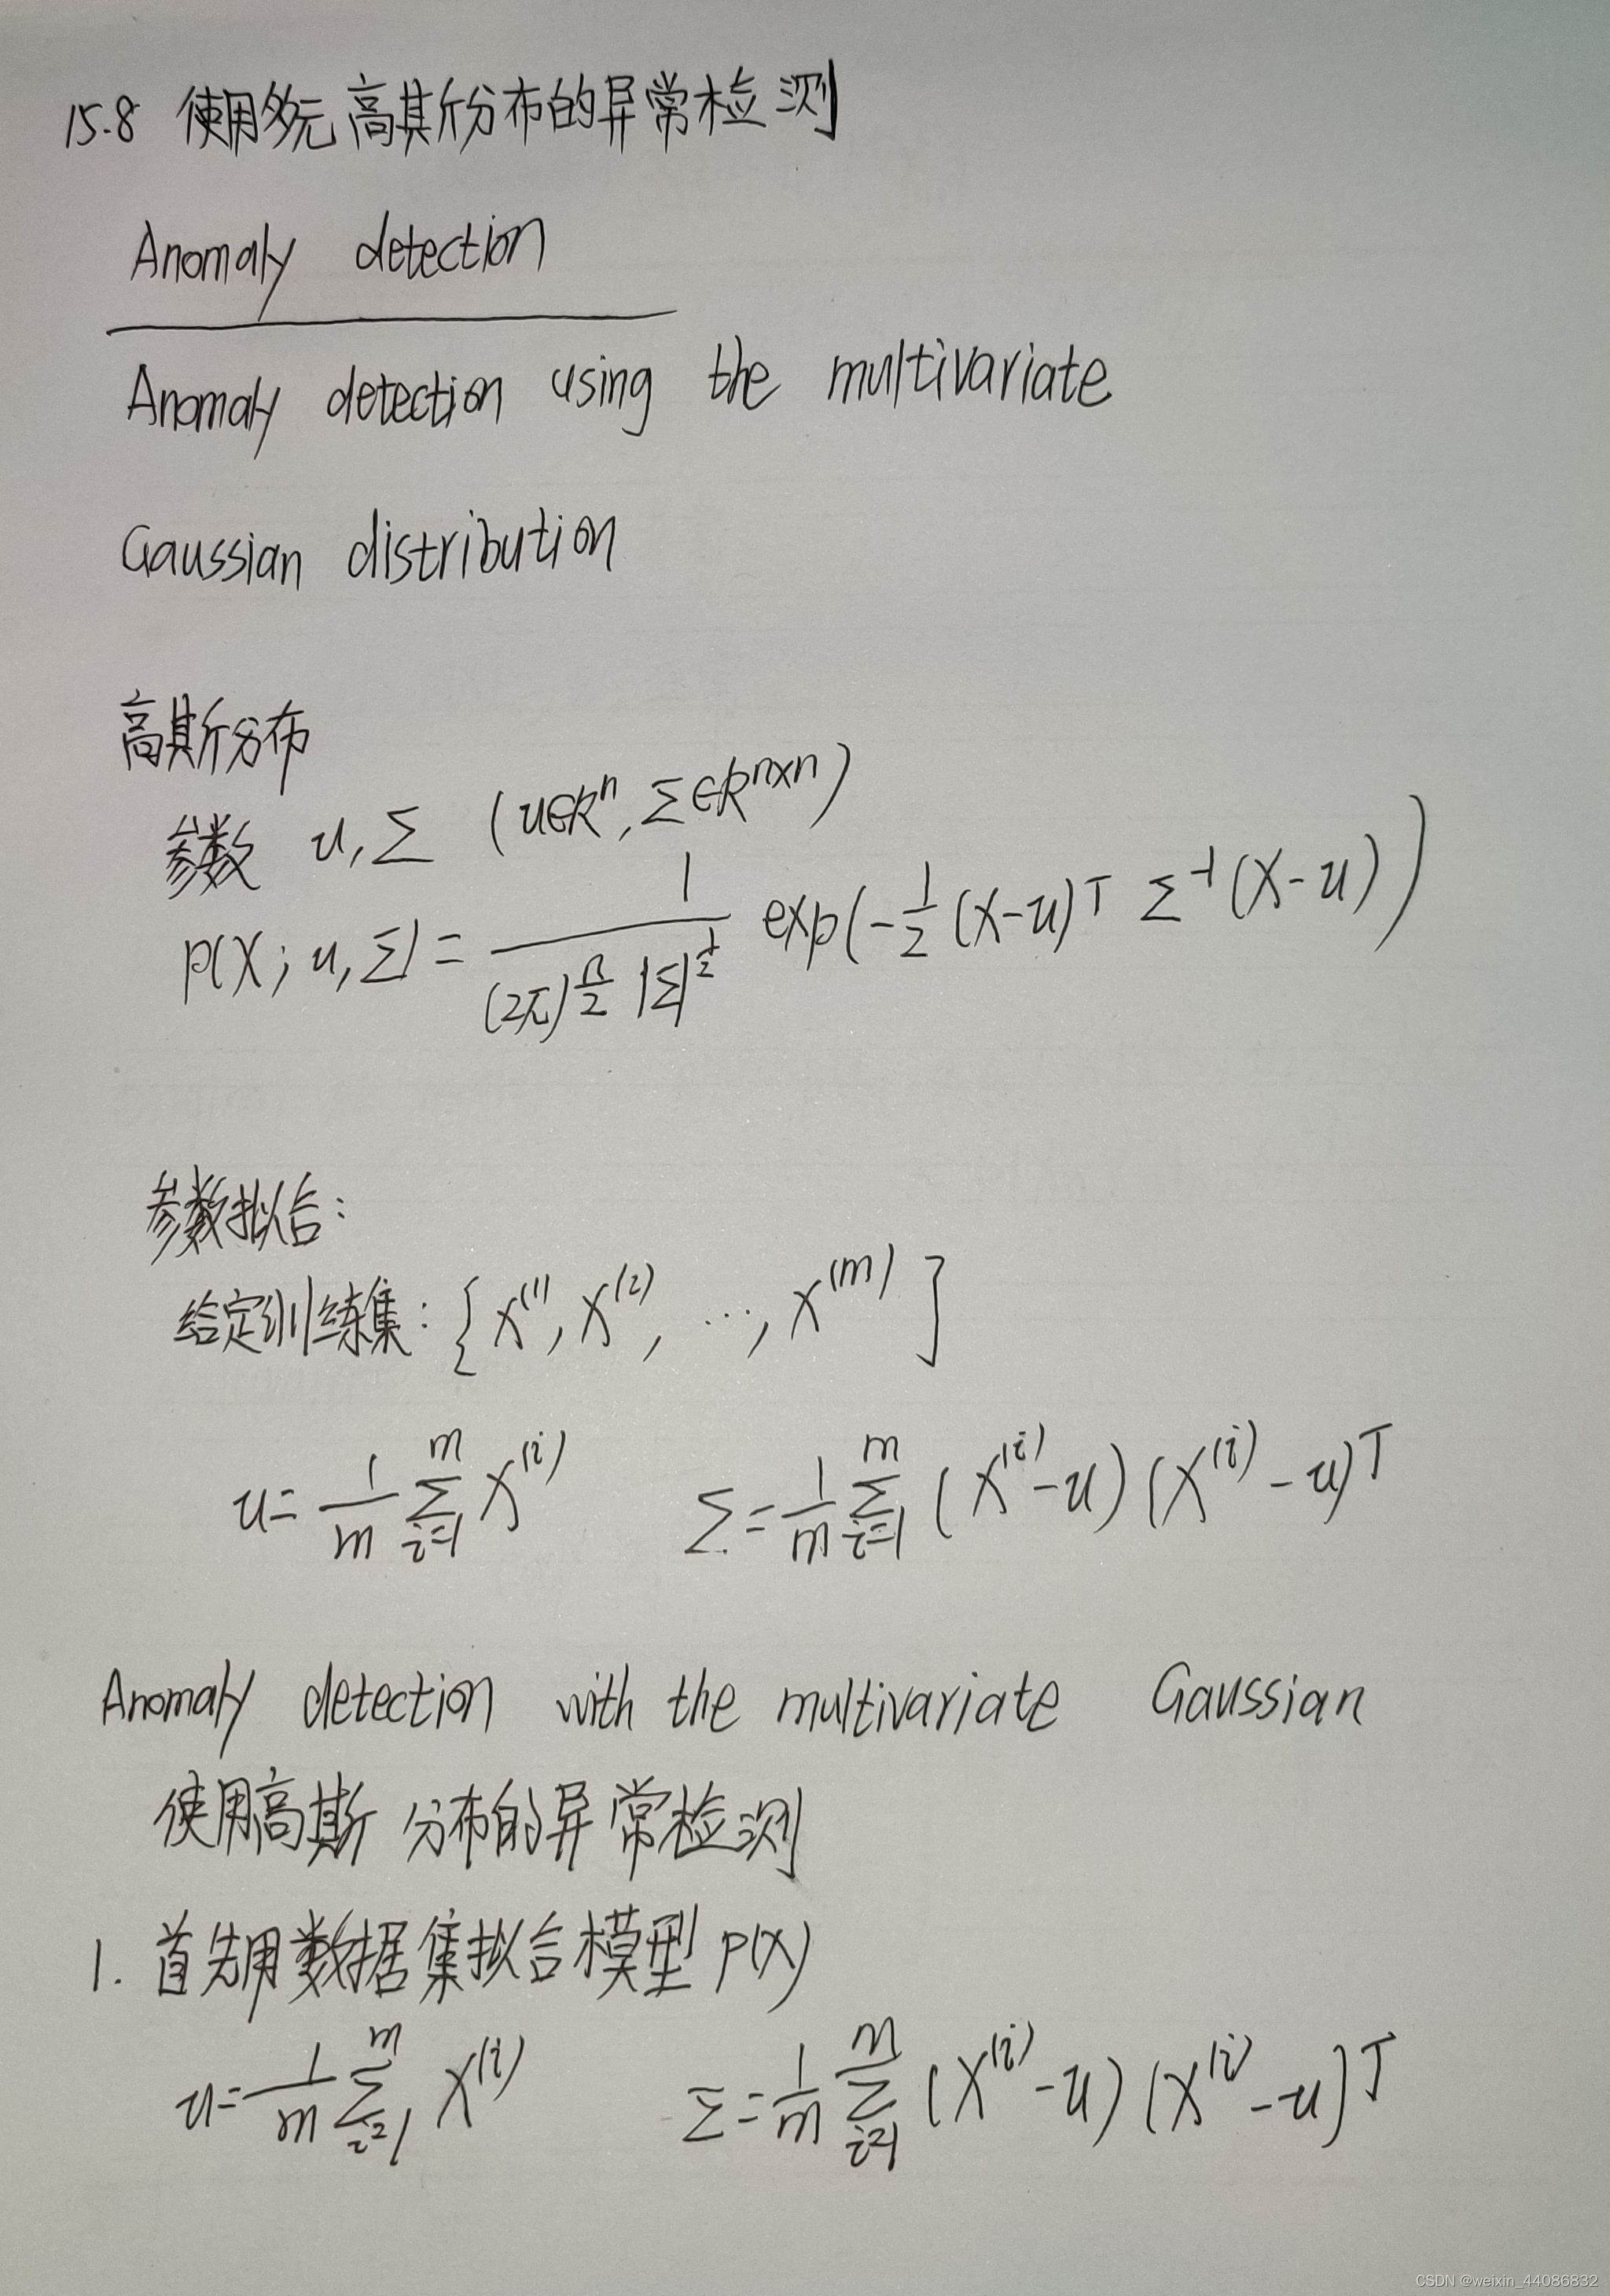 15.8 使用多元高斯分布的异常检测
Anomaly detection
Anomaly detection using the multivariate
Gaussian distribution
高斯分布
参数 u, Σ (u∈Rⁿ, Σ∈Rⁿˣⁿ)
p(x; u, Σ) = \frac{1}{(2π)^{\frac{n}{2}} |Σ|^{\frac{1}{2}}} exp(-\frac{1}{2}(x-u)^T Σ^{-1}(x-u))
参数拟合:
给定训练集: {x^{(1)}, x^{(2)}, ..., x^{(m)}}
u = \frac{1}{m} \sum_{i=1}^{m} x^{(i)} Σ = \frac{1}{m} \sum_{i=1}^{m} (x^{(i)}-u)(x^{(i)}-u)^T
Anomaly detection with the multivariate Gaussian
使用高斯分布的异常检测
1. 首先用数据集拟合模型 p(x)
u = \frac{1}{m} \sum_{i=1}^{m} x^{(i)} Σ = \frac{1}{m} \sum_{i=1}^{m} (x^{(i)}-u)(x^{(i)}-u)^T
CSDN @weixin_44086832